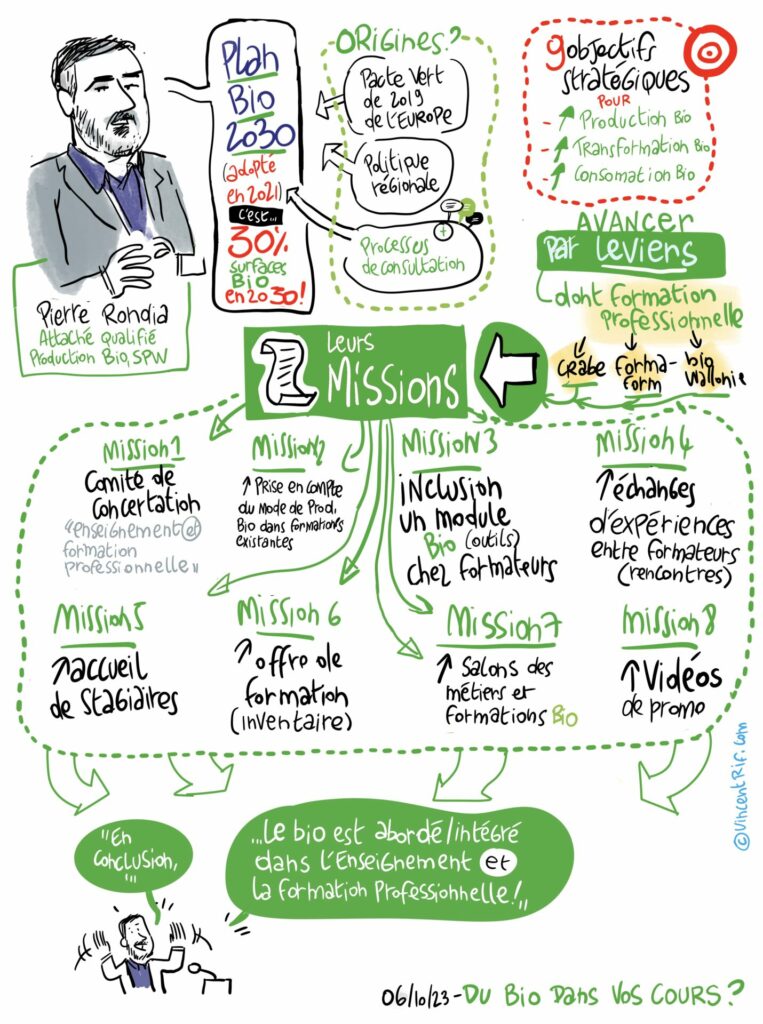 Plan
Bio
2030
(adopté
en 2021)
c'est...
30%
surfaces
Bio
en 2030!
Pierre Rondia
Attaché qualifié
Production Bio, SPW
ORIGINES?
Pacte Vert
de 2019
de l'EUROPE
Politique
régionale
Processus
de consultation
+
9 objectifs
stratégiques
POUR
- Production Bio
- Transformation Bio
- Consomation Bio
AVANCER
Par Leviers
dont formation
Professionnelle
CRABE
forma-
form
bio
Wallonie
Leurs
Missions
Mission 1
Comité de
concertation
"enseignement et
formation
professionnelle"
Mission 2
↑ Prise en compte
du Mode de Prod.
Bio dans formations
existantes
Mission 3
iNCLUSiON
un module
Bio (outils)
chez formateurs
Mission 4
↑ échanges
d'expériences
entre formateurs
(rencontres)
Mission 5
↑ accueil
de stagiaires
Mission 6
↑ offre de
formation
(inventaire)
Mission 7
↑ Salons des
métiers et
formations Bio
Mission 8
↑ Vidéos
de promo
©VincentRif.com
"En
conclusion,
..."
"...Le bio est abordé/intégré
dans l'Enseignement et
la formation Professionnelle!"
06/10/23 - Du Bio Dans Vos COURS?